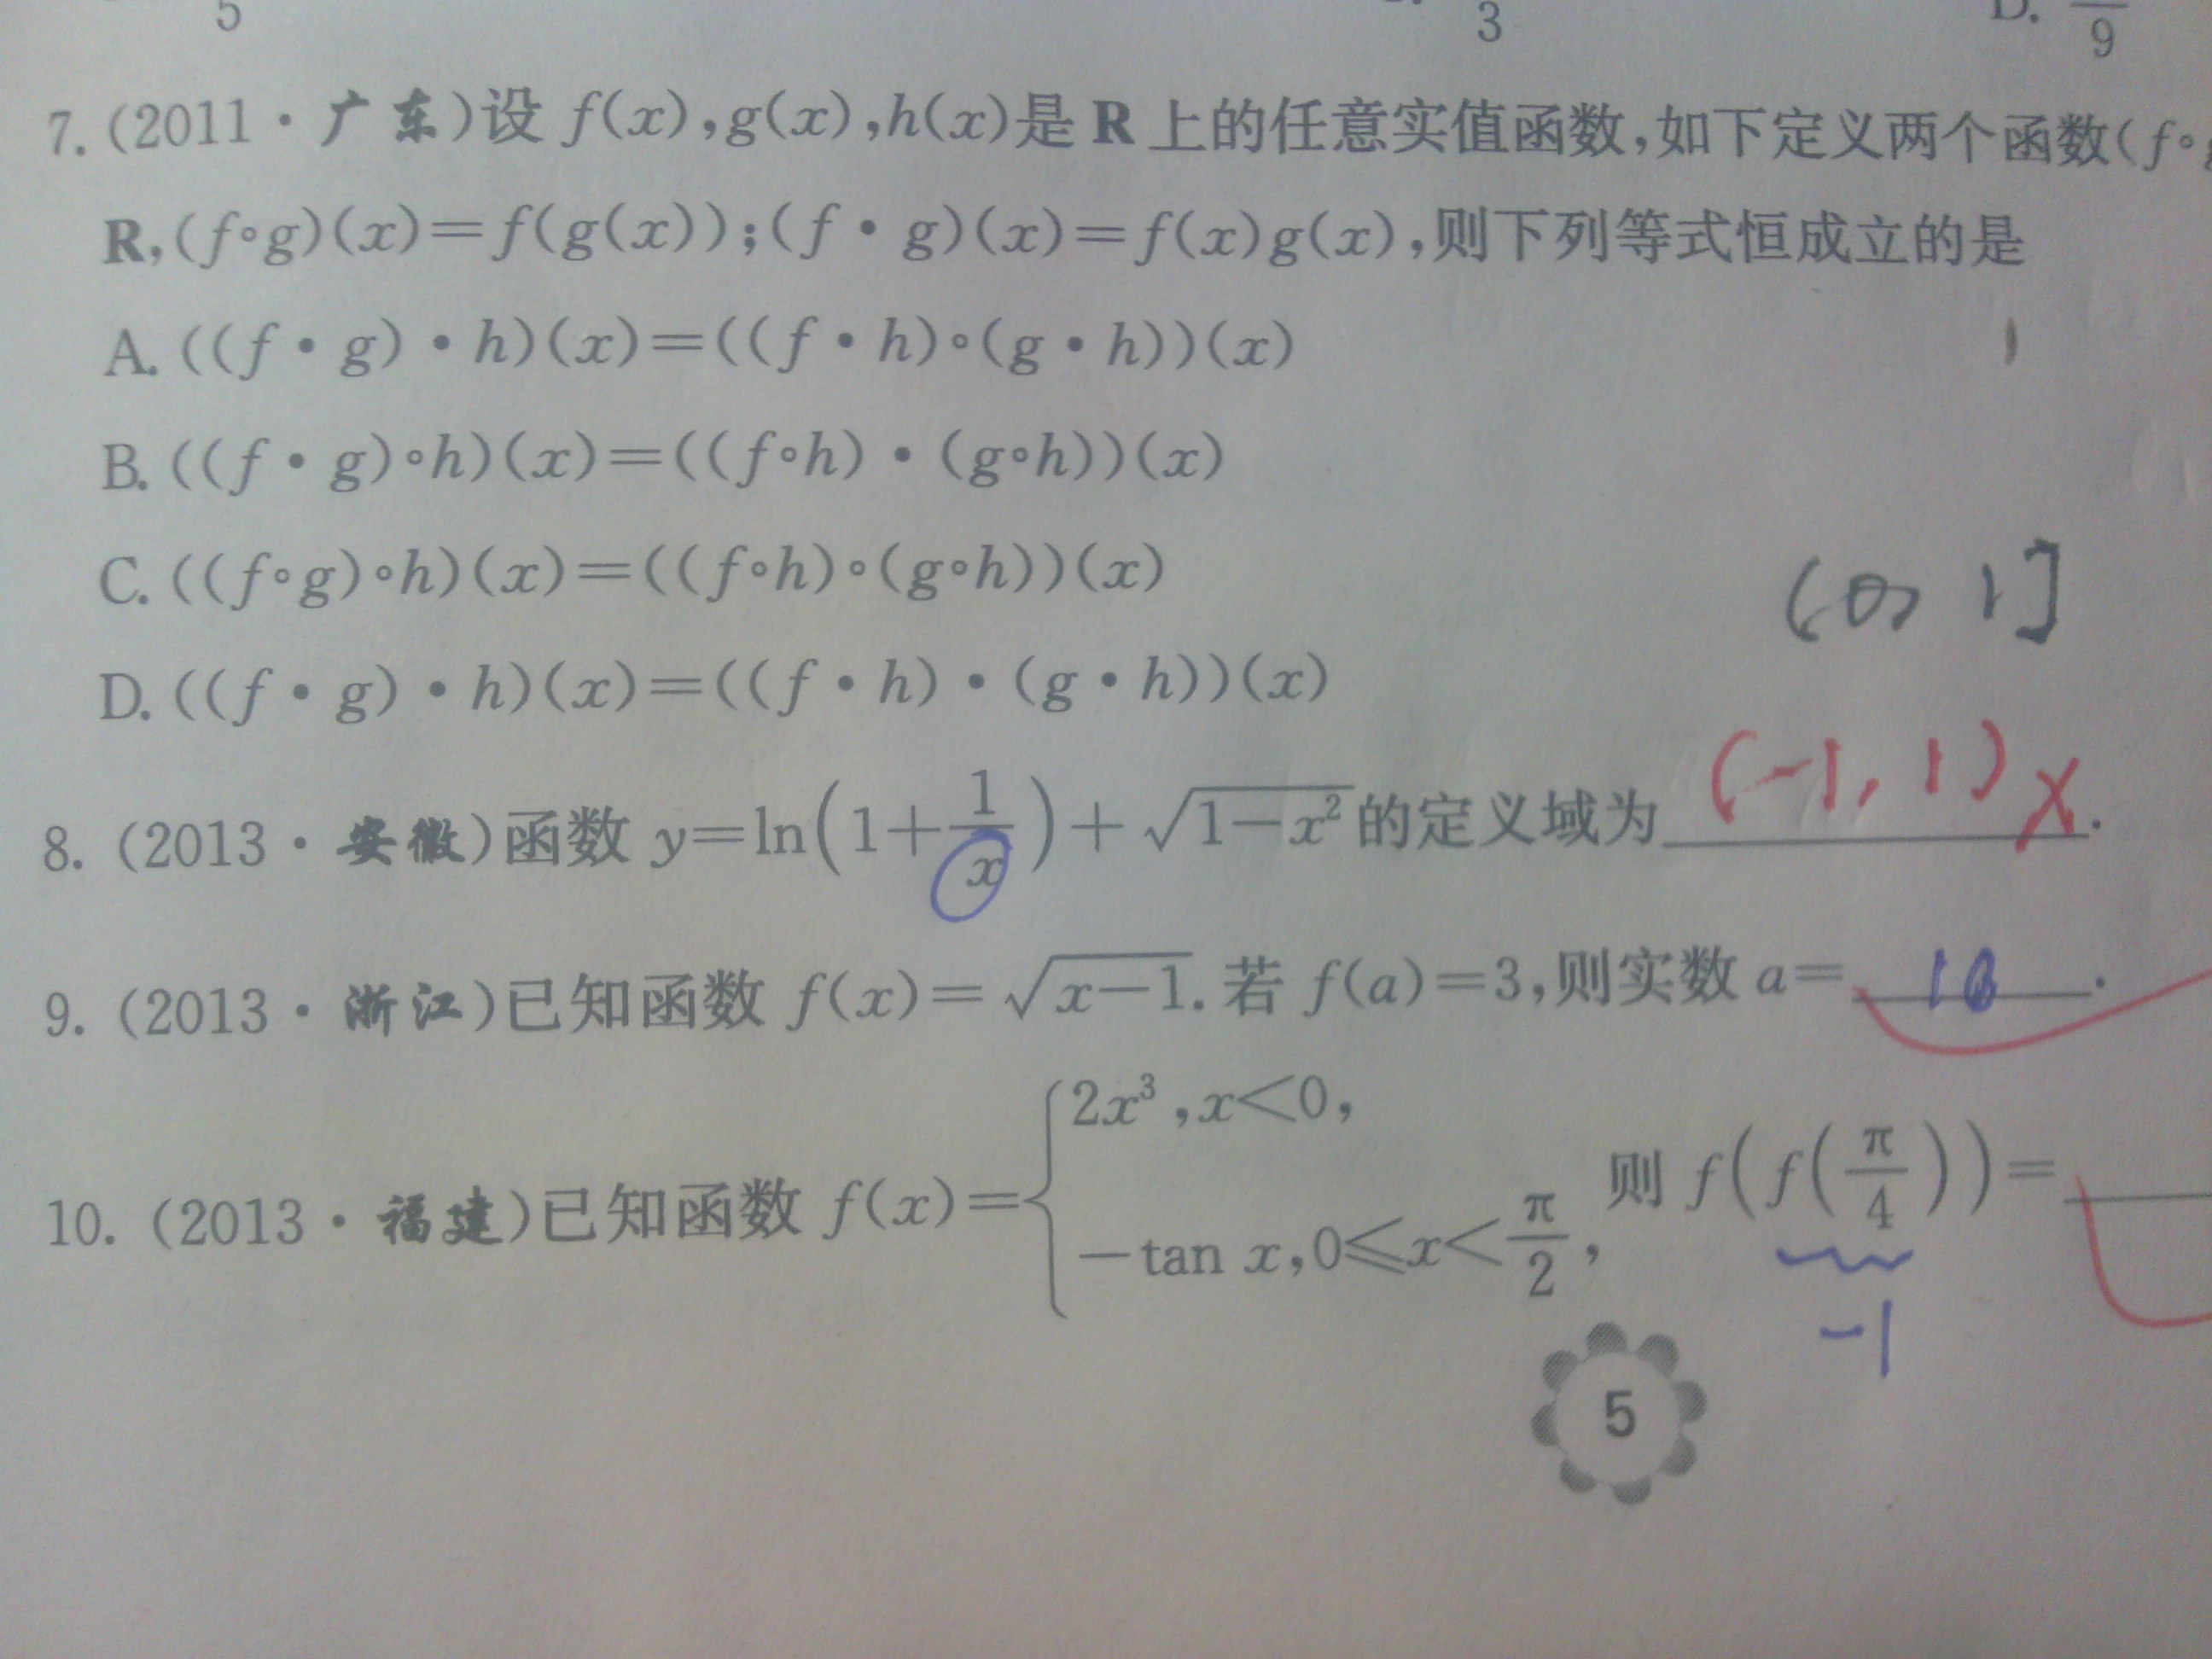 5 3 D. 9
7. (2011·广东)设 f(x),g(x),h(x)是 R 上的任意实值函数,如下定义两个函数(f∘g
R,(f∘g)(x)=f(g(x));(f·g)(x)=f(x)g(x),则下列等式恒成立的是
A. ((f·g)·h)(x)=((f·h)∘(g·h))(x)
B. ((f·g)∘h)(x)=((f∘h)·(g∘h))(x)
C. ((f∘g)∘h)(x)=((f∘h)∘(g∘h))(x)
(0, 1]
D. ((f·g)·h)(x)=((f·h)·(g·h))(x)
8. (2013·安徽)函数 y=ln(1+1/x)+√(1-x²)的定义域为 (-1, 1) ×.
9. (2013·浙江)已知函数 f(x)=√(x-1). 若 f(a)=3,则实数 a= 10 .
10. (2013·福建)已知函数 f(x)={2x³,x<0, -tan x,0≤x<π/2, 则 f(f(π/4))=
-1
5